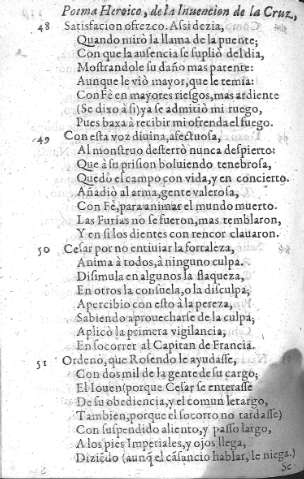 Poema Heroico, de la Inuencion de la Cruz,
48 Satisfacion ofrezco. Assi dezia,
Quando mirò la llama de la puente;
Con que la ausencia se suplio del dia,
Mostrandole su daño mas patente:
Aunque le viò mayor, que le temia:
Con Fè en mayores riesgos, mas ardiente
(Se dixo à si) ya se admitiò mi ruego,
Pues baxa à recibir mi ofrenda el fuego.
49 Con esta voz diuina, afectuosa,
Al monstruo desterrò nunca despierto:
Que à su prision boluiendo tenebrosa,
Quedò el campo con vida, y en concierto.
Añadiò al arma, gente valerosa,
Con Fè, para animar el mundo muerto.
Las Furias no se fueron, mas temblaron,
Y en si los dientes con rencor clauaron.
50 Cesar por no entiuiar la fortaleza,
Anima à todos, à ninguno culpa.
Disimula en algunos la flaqueza,
En otros la consuela, o la disculpa;
Apercibio con esto à la pereza,
Sabiendo aprouecharse de la culpa;
Aplicò la primera vigilancia,
En socorrer al Capitan de Francia.
51 Ordenò, que Rosendo le ayudasse,
Con dos mil de la gente de su cargo;
El Iouen (porque Cesar se enterasse
De su obediencia, y el comun letargo,
Tambien, porque el socorro no tardasse)
Con suspendido aliento, y passo largo,
A los pies Imperiales, y ojos llega,
Diziẽdo (aunq̃ el cãsancio hablar, le niega.)
Se